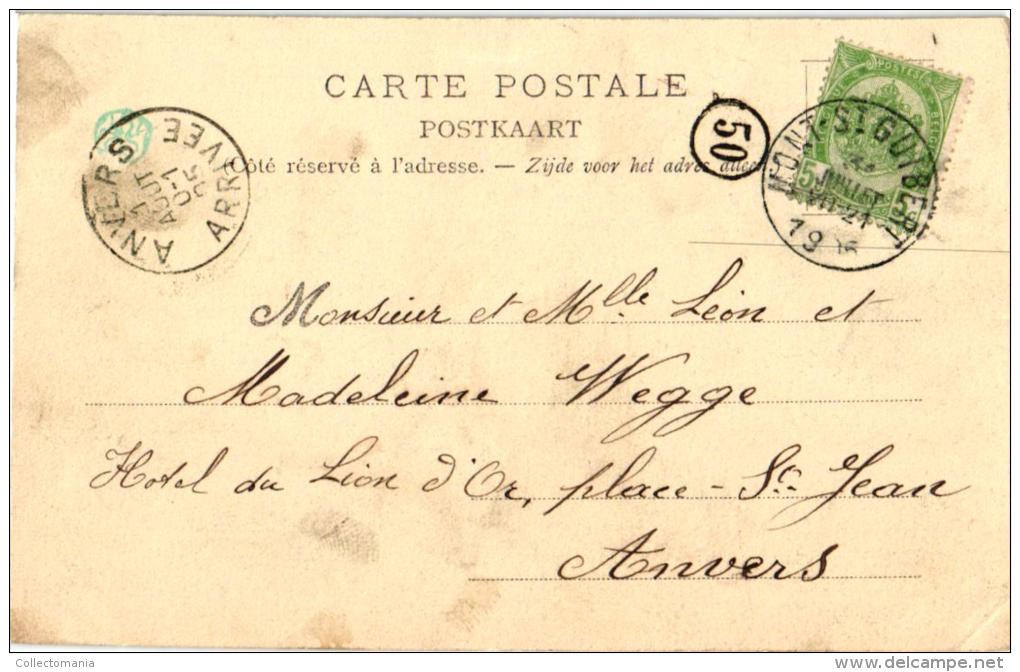 CARTE POSTALE
POSTKAART
(Côté réservé à l'adresse. — Zijde voor het adres alleen
50
POSTES
5
MONT-ST-GUIBERT
JUILLET
19
ANVERS
1
AOUT
0-1
05
ARRIVEE
Monsieur et Mlle Léon et
Madeleine Wegge
Hotel du Lion d'Or, place - St Jean
Anvers
Collectomania
delcampe.net